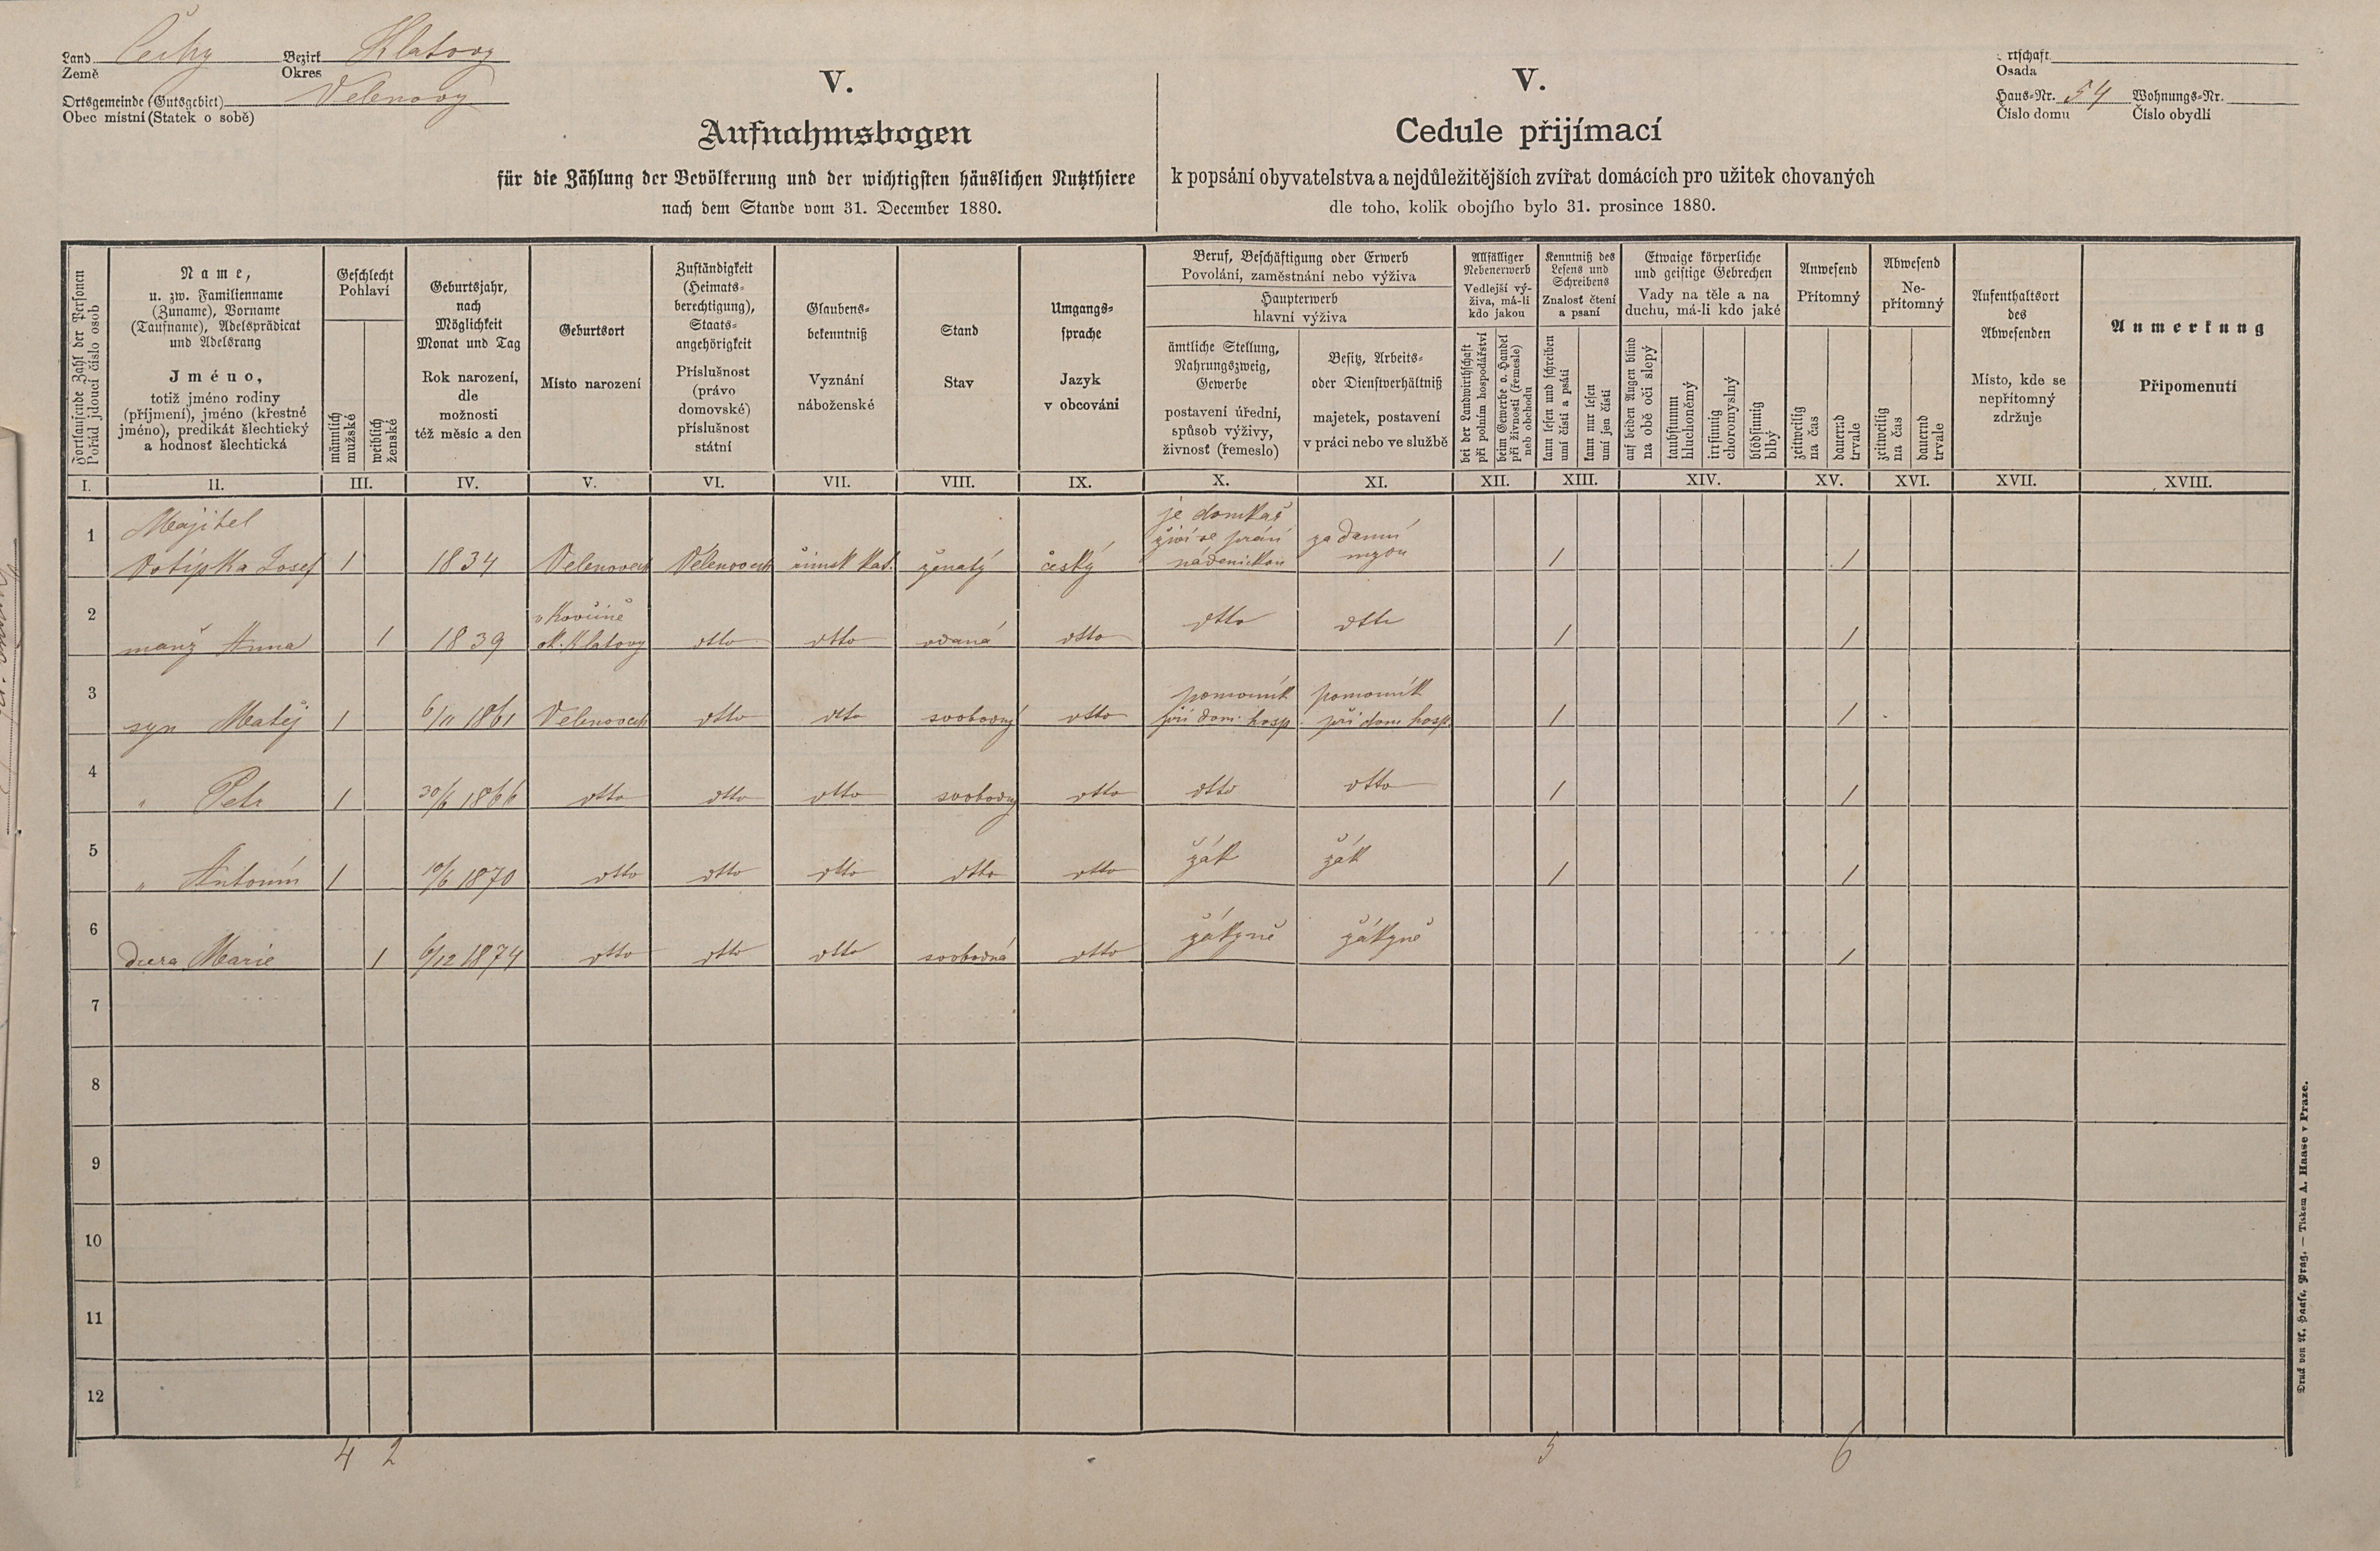 Land Čechy Bezirk Klatovy
Země Okres
Ortsgemeinde (Gutsgebiet) Velenovy
Obec místní (Statek o sobě)
V.
Aufnahmsbogen
für die Zählung der Bevölkerung und der wichtigsten häuslichen Nutzthiere
nach dem Stande vom 31. December 1880.
V.
Cedule přijímací
k popsání obyvatelstva a nejdůležitějších zvířat domácích pro užitek chovaných
dle toho, kolik obojího bylo 31. prosince 1880.
rtschaft
Osada
Haus-Nr. 54 Wohnungs-Nr.
Číslo domu Číslo obydlí
Fortlaufende Zahl der Personen
Pořád jdoucí číslo osob
Name,
u. zw. Familienname
(Zuname), Vorname
(Taufname), Adelsprädicat
und Adelsrang
Jméno,
totiž jméno rodiny
(příjmení), jméno (křestné
jméno), predikát šlechtický
a hodnosť šlechtická
Geschlecht
Pohlaví
männlich
mužské
weiblich
ženské
Geburtsjahr,
nach
Möglichkeit
Monat und Tag
Rok narození,
dle
možnosti
též měsíc a den
Geburtsort
Místo narození
Zuständigkeit
(Heimats-
berechtigung),
Staats-
angehörigkeit
Příslušnost
(právo
domovské)
příslušnost
státní
Glaubens-
bekenntniß
Vyznání
náboženské
Stand
Stav
Umgangs-
sprache
Jazyk
v obcování
Beruf, Beschäftigung oder Erwerb
Povolání, zaměstnání nebo výživa
Haupterwerb
hlavní výživa
ämtliche Stellung,
Nahrungszweig,
Gewerbe
postavení úřední,
spůsob výživy,
živnosť (řemeslo)
Besitz, Arbeits-
oder Dienstverhältniß
majetek, postavení
v práci nebo ve službě
Allfälliger
Nebenerwerb
Vedlejší vý-
živa, má-li
kdo jakou
bei der Landwirthschaft
při polním hospodářství
beim Gewerbe o. Handel
při živnosti (řemesle)
neb obchodu
Kenntniß des
Lesens und
Schreibens
Znalosť čtení
a psaní
kann lesen und schreiben
umí čísti a psáti
kann nur lesen
umí jen čísti
Etwaige körperliche
und geistige Gebrechen
Vady na těle a na
duchu, má-li kdo jaké
auf beiden Augen blind
na obě oči slepý
taubstumm
hluchoněmý
irrsinnig
choromyslný
blödsinnig
blbý
Anwesend
Přítomný
zeitweilig
na čas
dauernd
trvale
Abwesend
Ne-
přítomný
zeitweilig
na čas
dauernd
trvale
Aufenthaltsort
des
Abwesenden
Místo, kde se
nepřítomný
zdržuje
Anmerkung
Připomenutí
I. II. III. IV. V. VI. VII. VIII. IX. X. XI. XII. XIII. XIV. XV. XVI. XVII. XVIII.
1 Majitel je domkař
živí se prací za denní
Votípka Josef 1 1834 Velenovech Velenovech římsk kat. ženatý český nádenickou mzdu 1 1
2 v Kovčíně dtto dtto
manž Anna 1 1839 ok. Klatovy dtto dtto vdaná dtto 1 1
3 pomocník pomocník
syn Matěj 1 6/11 1861 Velenovech dtto dtto svobodný dtto při dom. hosp. při dom hosp. 1 1
4 " Petr 1 30/6 1866 dtto dtto dtto svobodný dtto dtto dtto 1 1
5 " Antonín 1 10/6 1870 dtto dtto dtto dtto dtto žák žák 1 1
6 dcera Marie 1 6/12 1874 dtto dtto dtto svobodná dtto žákyně žákyně 1
7
8
9
10
11
12
4 2 5 6
Druck von A. Haase, Prag. — Tiskem A. Haase v Praze.